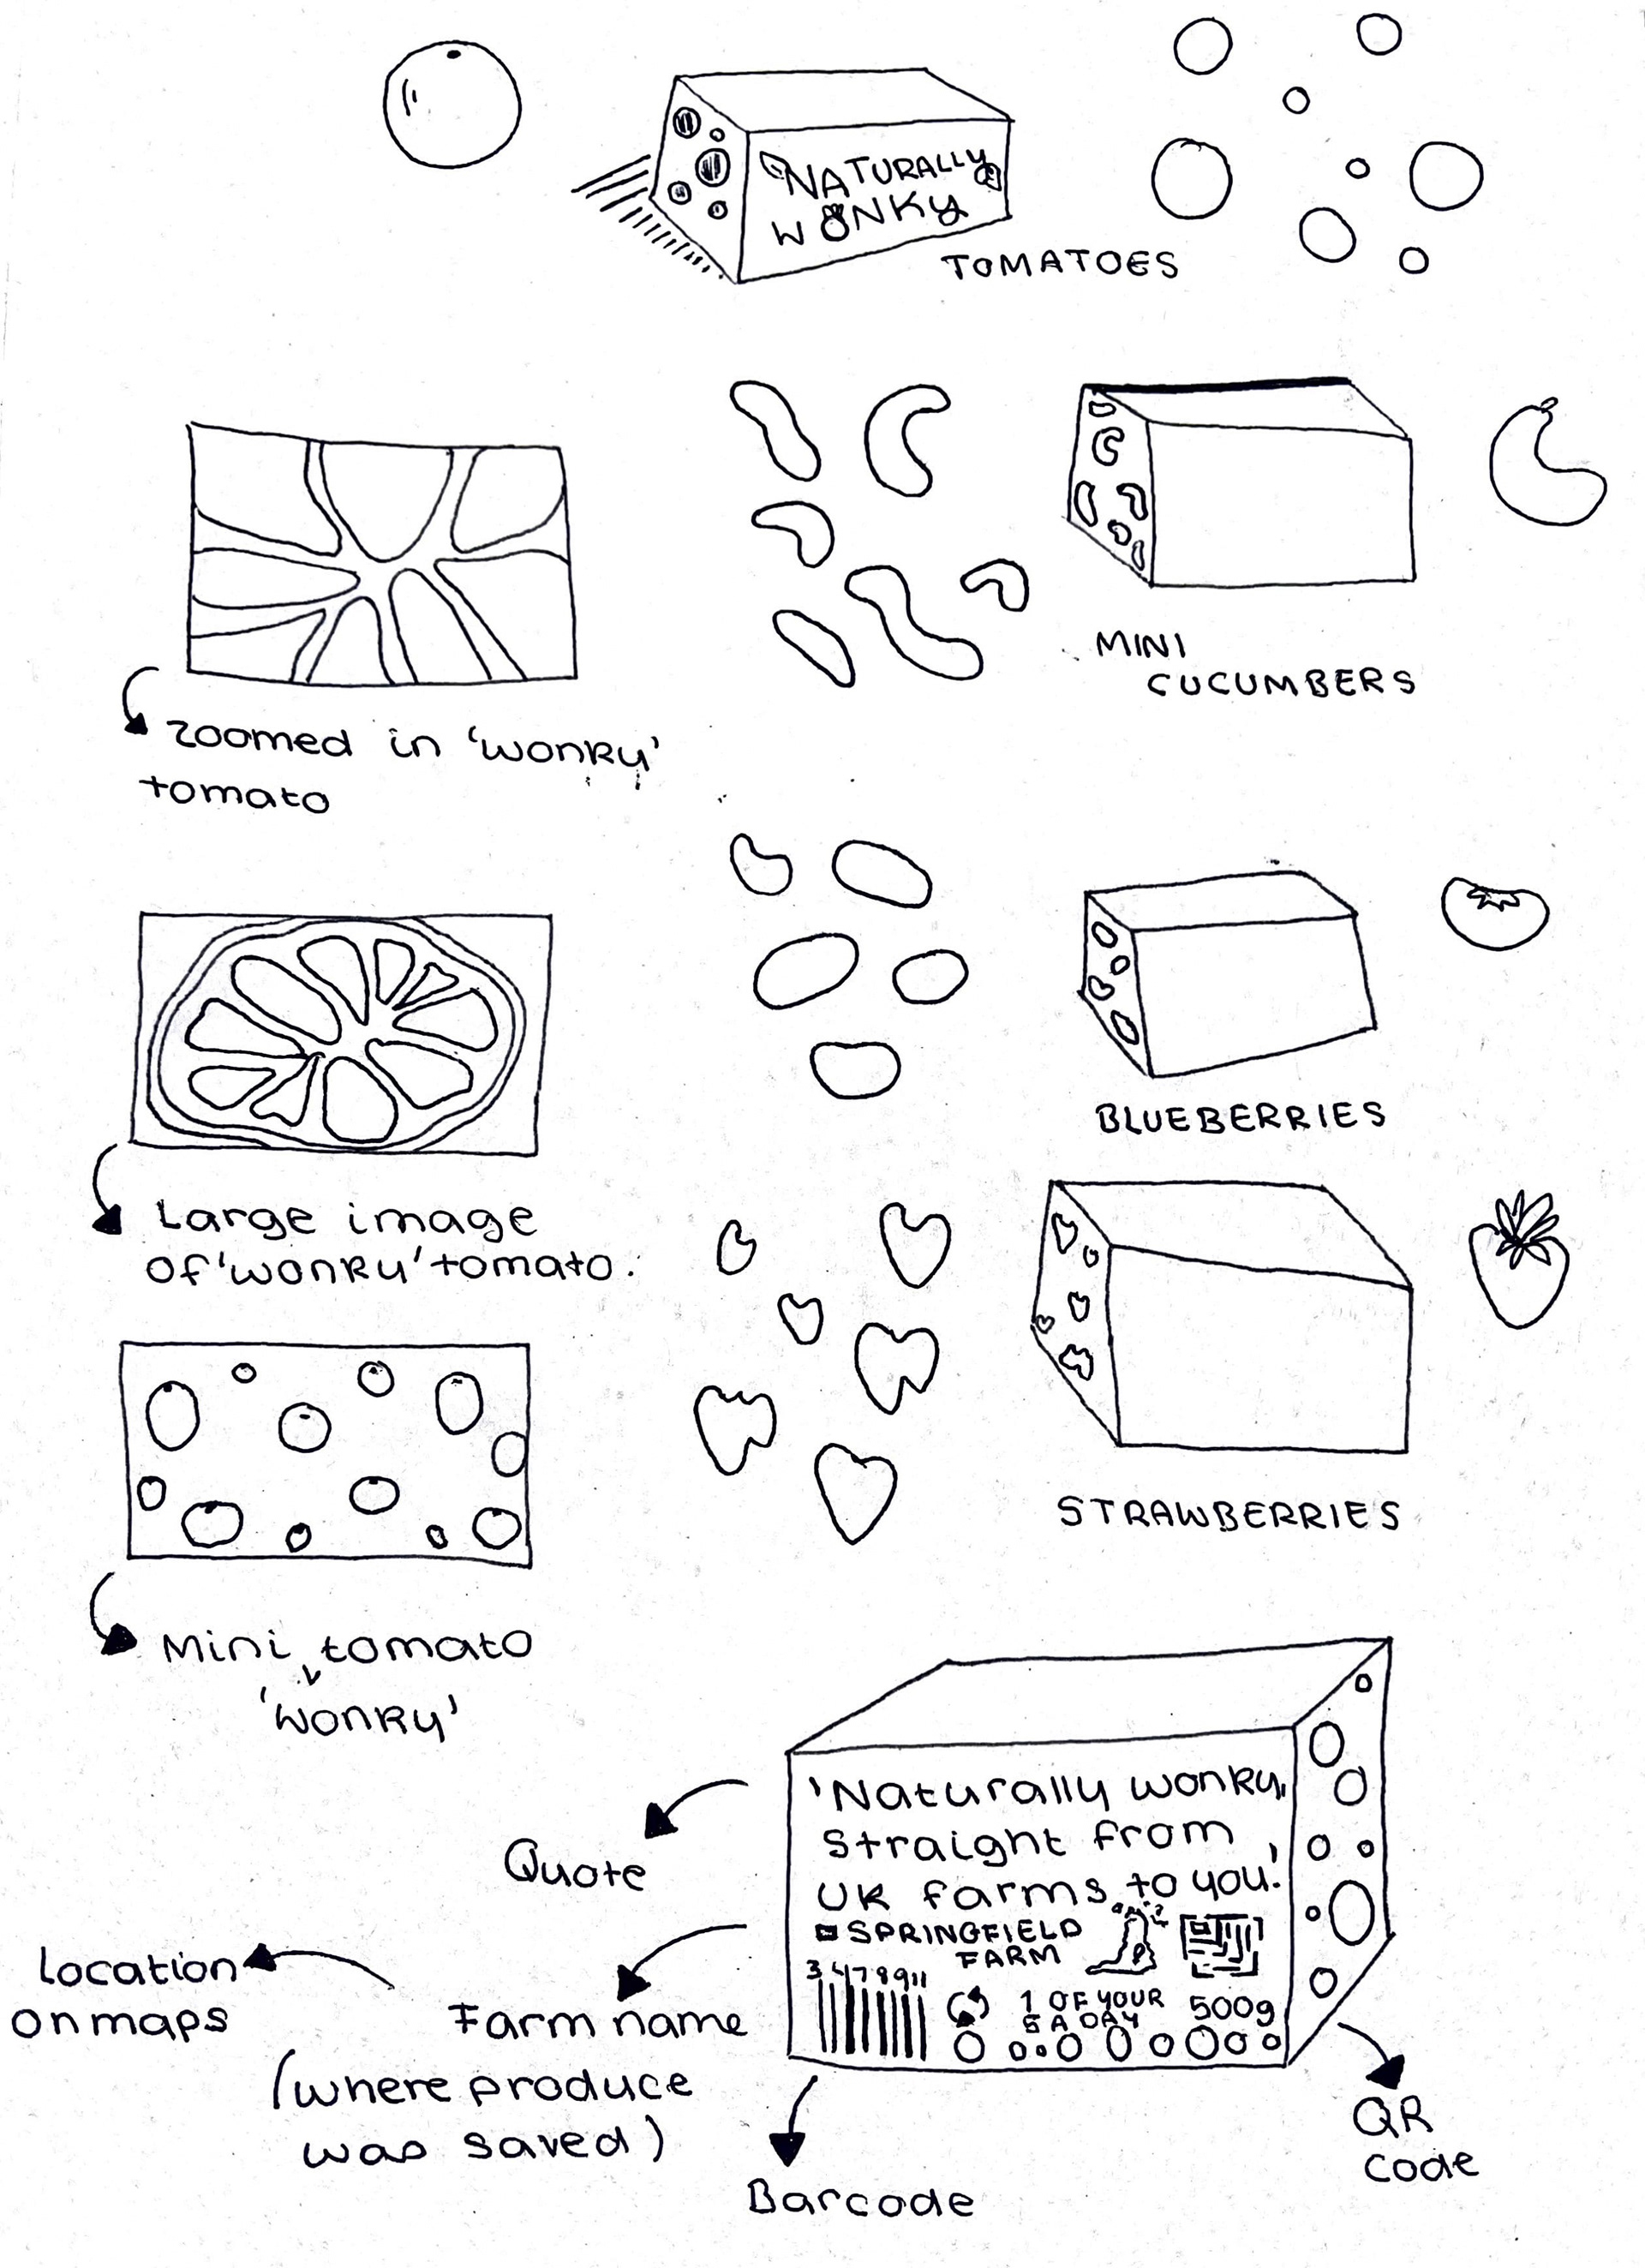 NATURALLY
WONKY
TOMATOES
MINI
CUCUMBERS
zoomed in 'wonky'
tomato
BLUEBERRIES
Large image
of 'wonky' tomato.
STRAWBERRIES
Mini tomato
'wonky'
'Naturally wonky,
straight from
UK farms to you.'
SPRINGFIELD
FARM
1 OF YOUR
5 A DAY
500g
Quote
Location
on maps
Farm name
(where produce
was saved)
Barcode
QR
code